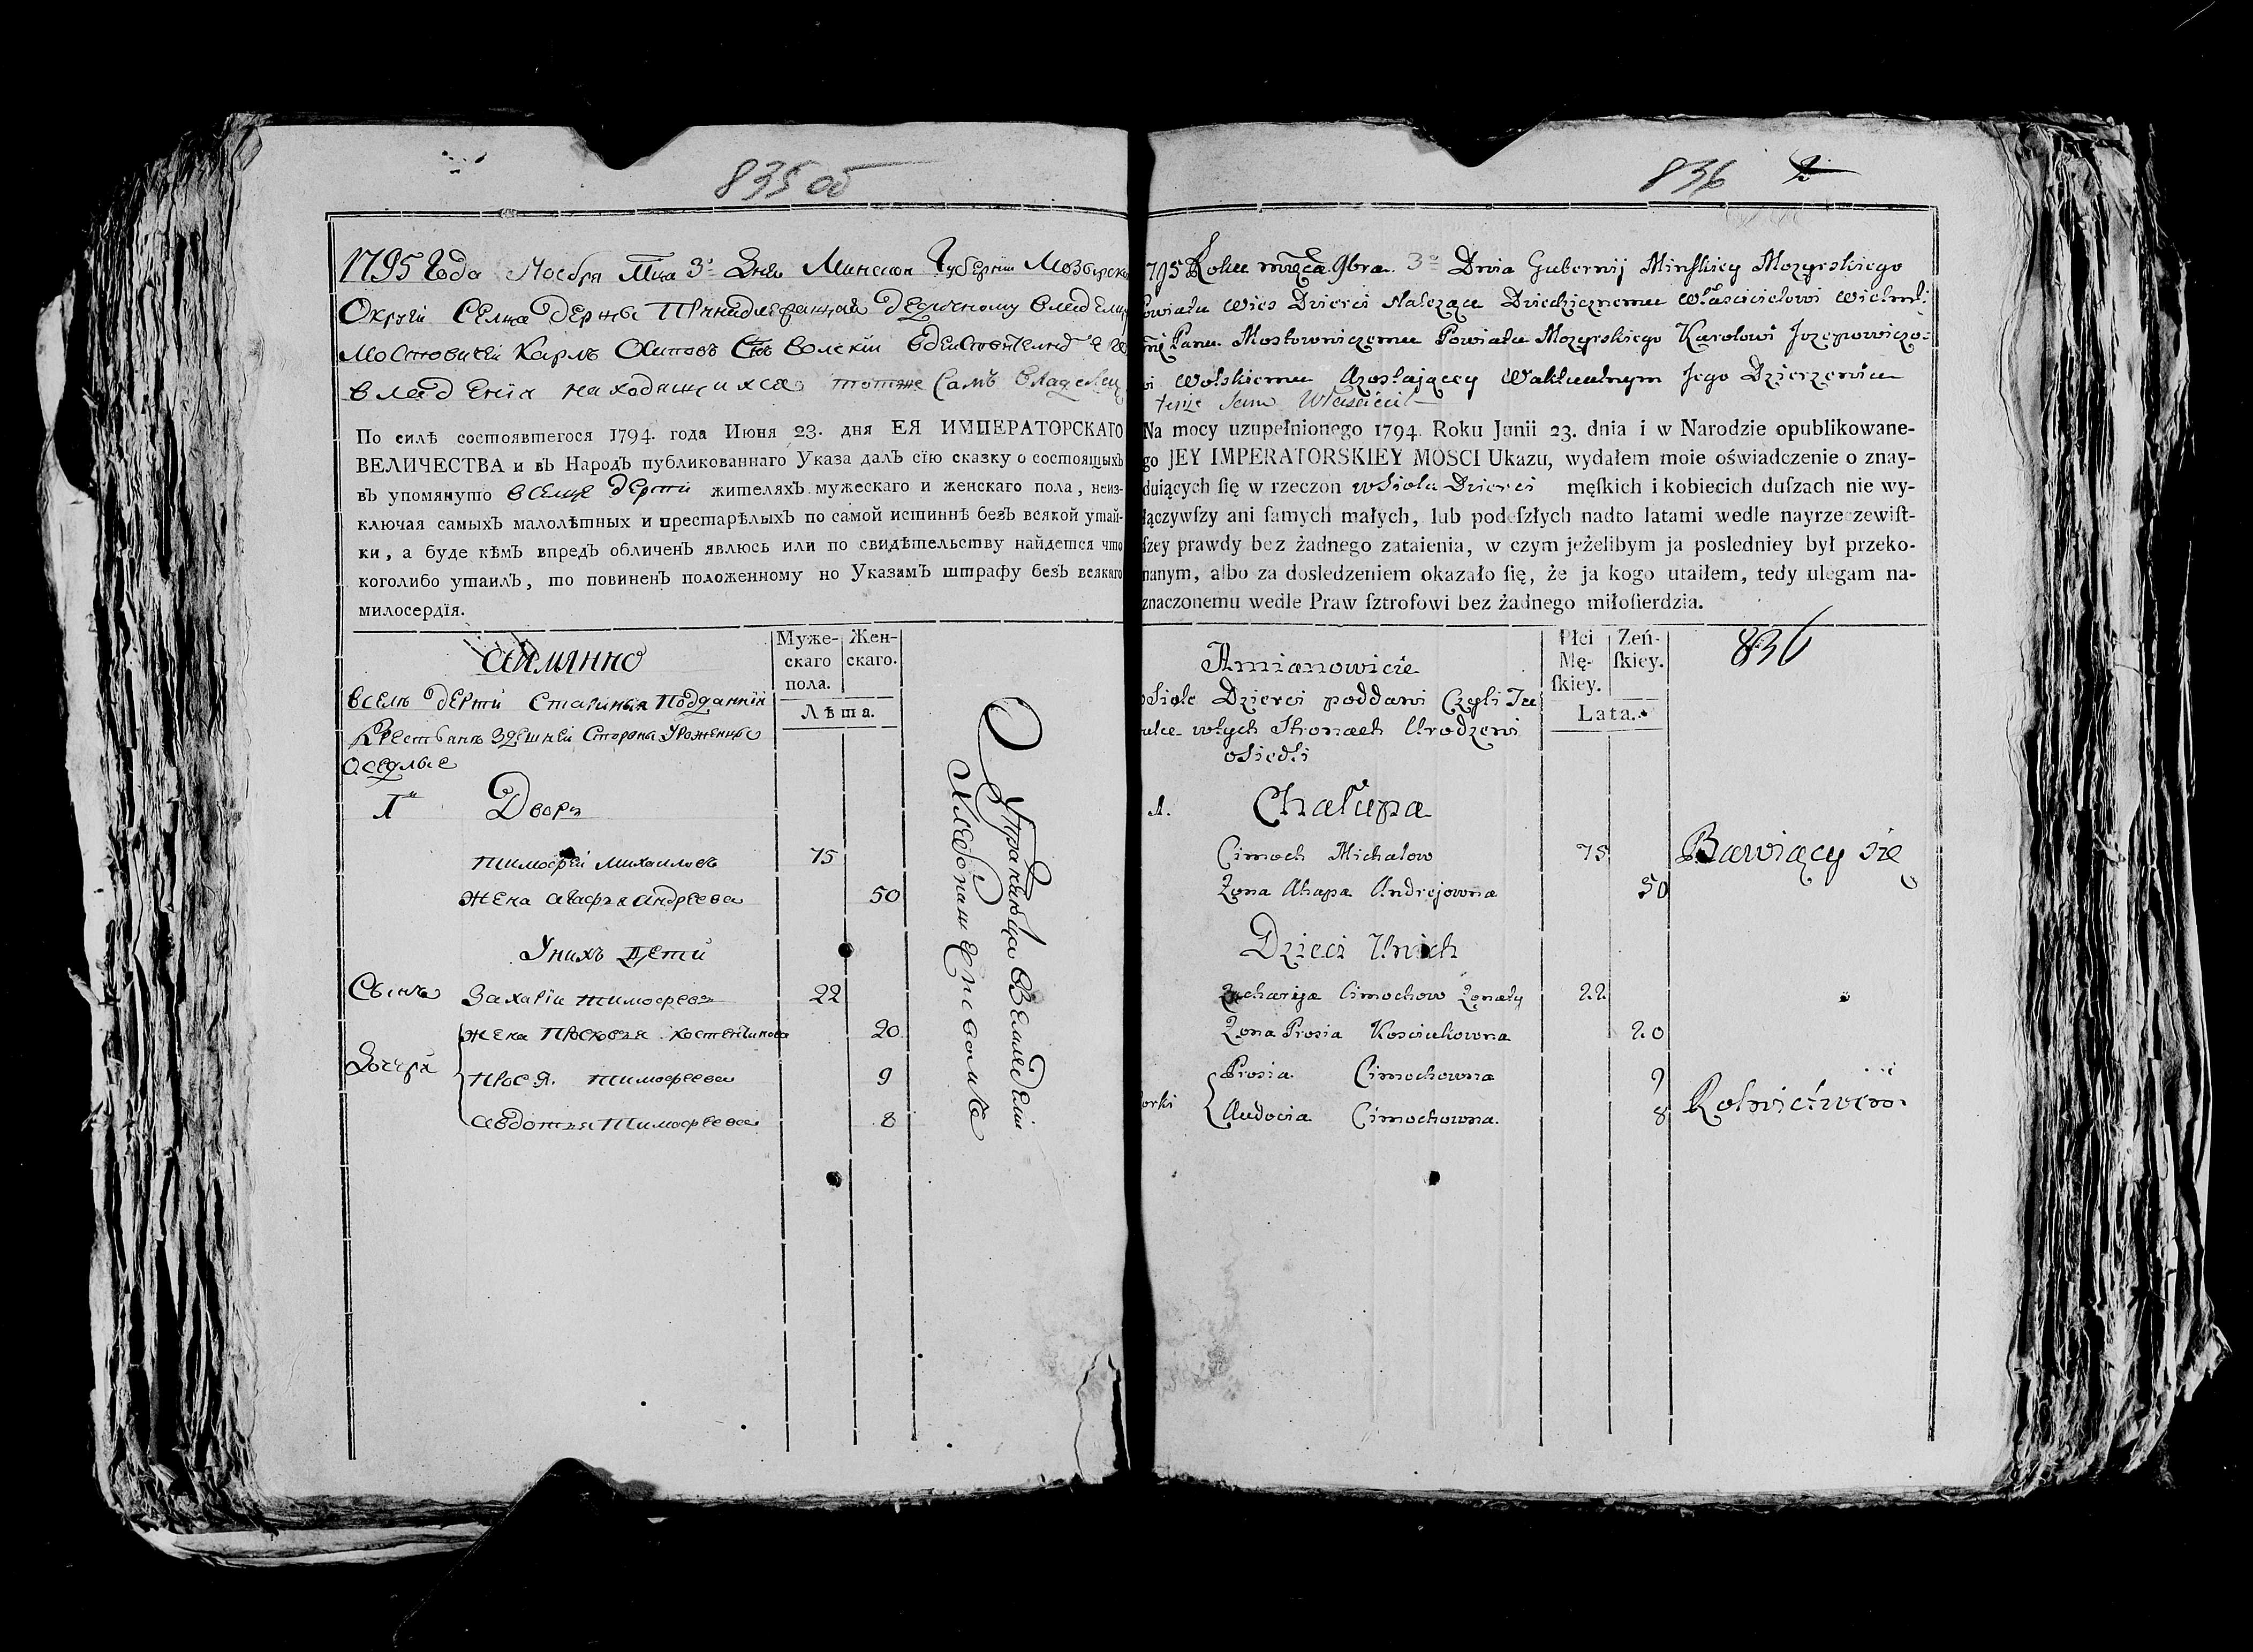 835 об
1795 Года Ноебря Мца 3го Дня Минской Губернии Мозырской
Округи Селца Дерти Принадлежащаи Дедичному владелцу
Мостовичему Карлъ Осиповъ Снъ Волскии
владения находящихся тотже самъ владелец
По силѣ состоявшегося 1794. года Июня 23. дня ЕЯ ИМПЕРАТОРСКАГО
ВЕЛИЧЕСТВА и въ Народъ публикованнаго Указа далъ сїю сказку о состоящыхъ
въ упомянуто вселце Дерти жителяхъ мужескаго и женскаго пола, неиз-
ключая самыхъ малолѣтныхъ и престарѣлыхъ по самой истиннѣ безъ всякой утай-
ки, а буде кѣмъ впредъ обличенъ явлюсь или по свидѣтельству найдется что
коголибо утаилъ, то повиненъ положенному по Указамъ штрафу безъ всякаго
милосердїя.
аимянно
Муже-
скаго
пола.
Жен-
скаго.
Лѣта.
вселѣ Дерти Старинныя Подданнии
Крестьянъ здешней Стороны Уроженцы
Оседлые
1й Дворъ
Тимофей Михаиловъ 75
Жена Агафья Андреева 50
У нихъ Дети
Сынъ Захарiи Тимофеевъ 22
Жена Прасковья Костентинова 20
Дочери Прося Тимофеева 9
Авдотья Тимофеева 8
Упражняюца Вземледелии
Хлебопашественомъ
836
1795 Roku mśca 9bra 3o Dnia Gubernij Minskiey Mozyrskiego
Powiatu Wies Dzierci Należąca Dziedzicznemu Właścicielowi Wielmo:
Panu Mostowniczemu Powiatu Mozyrskiego Karolowi Jozepowiczo:
wi Wolskiemu Zostającey Waktualnym Jego Dzierżeniu
tenże Sam Właściciel
Na mocy uzupełnionego 1794. Roku Junii 23. dnia i w Narodzie opublikowane-
go JEY IMPERATORSKIEY MOSCI Ukazu, wydałem moie oświadczenie o znay-
duiących ſię w rzeczon wSiołu Dzierci męſkich i kobiecich duſzach nie wy-
łączywſzy ani ſamych małych, lub podeſzłych nadto latami wedle nayrzeczewiſt-
ſzey prawdy bez żadnego zataienia, w czym jeżelibym ja posledniey był przeko-
nanym, albo za dosledzeniem okazało ſię, że ja kogo utaiłem, tedy ulegam na-
znaczonemu wedle Praw ſztrofowi bez żadnego miłoſierdzia.
Amianowicie
Płci
Mę-
ſkiey.
Zeń-
ſkiey.
Lata.
836
wSiole Dzierci poddani Czyli
wtych Stronach Urodzeni
oSiedli
1. Chałupa
Cimoch Michałow 75
Żona Ahapa Andrejowna 50
Dzieci Unich
Zacharyja Cimochow Żonaty 22
Żona Prosia Kosciukowna 20
Corki Prosia Cimochowna 9
Audocia Cimochowna 8
Bawiący się
Rolnictwem